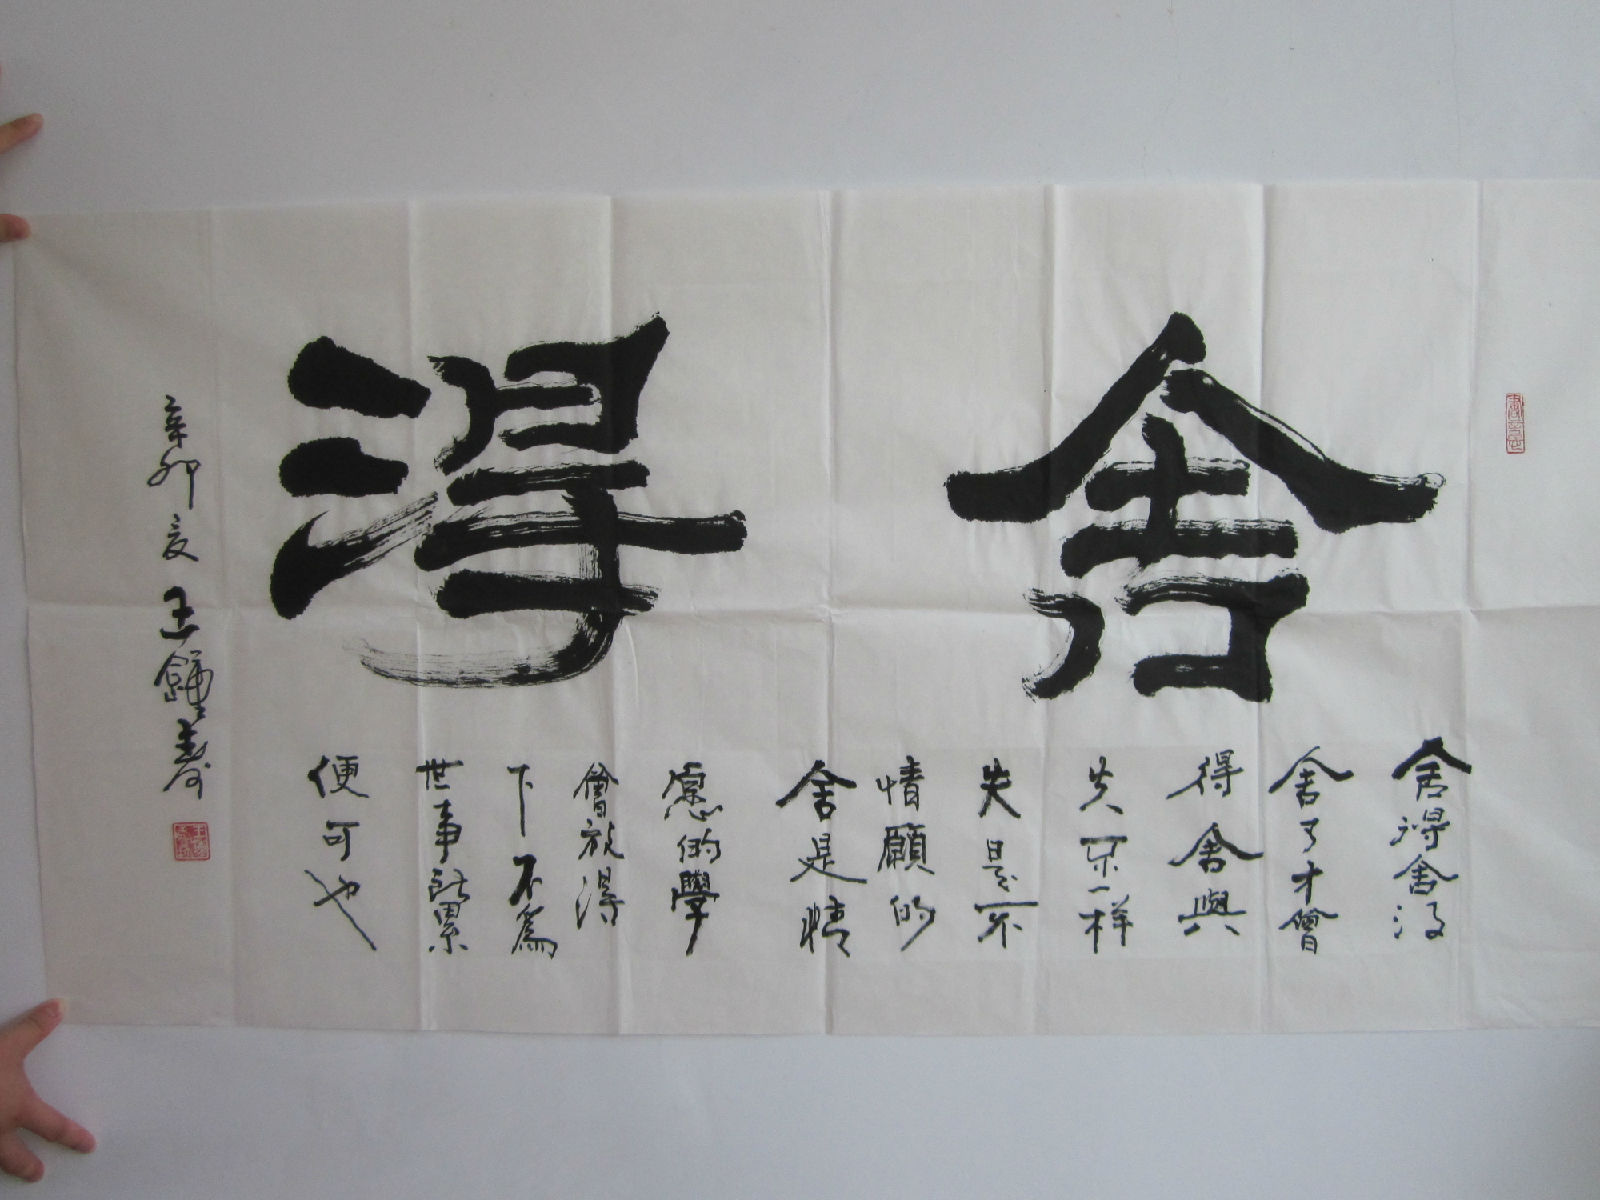 舍得
舍得舍没
舍了才會
得舍與
失不一样
失是不
情願的
舍是精
慮的學
會放得
下不為
世事所累
便可也
辛卯夏王鐘壽